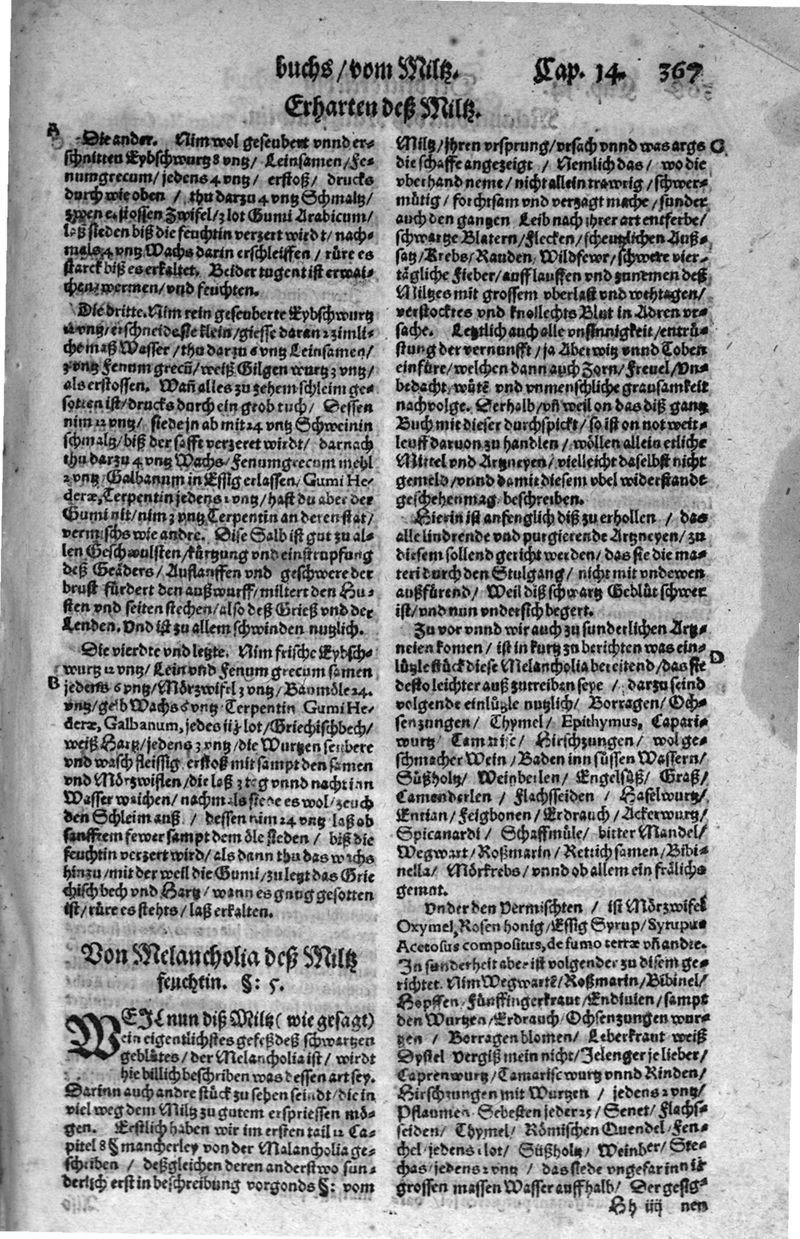 buchs / vom Miltz. Cap. 14. 367
Erharten deß Miltz.
A
Die ander. Nim wol geseubert vnnd er-
schnitten Eybschwurtz 8 vntz / Leinsamen / Fe-
numgrecum / jedens 4 vntz / erstoß / drucks
durch wie oben / thu darzu 4 vntz Schmaltz /
zwen erstossen Zwifel / 2 lot Gumi Arabicum /
laß sieden biß die feuchtin verzert wirdt / nach-
mals 4 vntz Wachs darin erschleiffen / rüre es
starck biß es erkaltet. Beider tugent ist erwai-
chen / wermen / vnd feuchten.
Die dritte. Nim rein geseuberte Eybschwurtz
12 vntz / erschneide sie klein / giesse daran 2 zimli-
che maß Wasser / thu darzu 6 vntz Leinsamen /
3 vntz Fenum grecū / weiß Gilgen wurtz 3 vntz /
als erstossen. Wañ alles zu zehem schleim ge-
sotten ist / drucks durch ein grob tuch / Dessen
nim 12 vntz / siede jn ab mit 24 vntz Schweinin
schmaltz / biß der saffe verzeret wirdt / darnach
thu darzu 4 vntz Wachs / Fenumgrecum mehl
2 vntz / Galbanum in Essig erlassen / Gumi He-
deræ, Terpentin jedens 1 vntz / hast du aber der
Gumi nit / nim 3 vntz Terpentin an deren stat /
vermischs wie andre. Dise Salb ist gut zu al-
len Geschwulsten / kürtzung vnd einstrupfung
deß Geäders / Aufflauffen vnd geschwere der
brust fürdert den außwurff / miltert den Hu-
sten vnd seiten stechen / also deß Grieß vnd der
Lenden. Vnd ist zu allem schwinden nutzlich.
Die vierdte vnd letzte. Nim frische Eybsch-
wurtz 12 vntz / Lein vnd Fenum grecum samen
B
jedens 6 vntz / Mörzwifel 3 vntz / Baumöle 24.
vntz / gelb Wachs 6 vntz Terpentin Gumi He-
deræ, Galbanum, jedes iiȷ lot / Griechischbech /
weiß Hartz / jedens 3 vntz / die Wurtzen seubere
vnd wasch fleissig erstoß mit sampt den samen
vnd Mörzwiflen / die laß 3 tag vnnd nacht inn
Wasser waichen / nachmals siede es wol / zeuch
den Schleim auß / dessen nim 24 vntz laß ob
sanfftem fewer sampt dem öle sieden / biß die
feuchtin verzert wird / als dann thu das wachs
hinzu / mit der weil die Gumi / zu letzt das Grie
chischbech vnd Hartz / wann es gnug gesotten
ist / rüre es stehts / laß erkalten.
Von Melancholia deß Miltz
feuchtin. §: 5.
WEJL nun diß Miltz ( wie gesagt)
ein eigentlichstes gefeß deß schwartzen
geblütes / der Melancholia ist / wirdt
hie billich beschriben was dessen art sey.
Darinn auch andre stück zu sehen seindt / die in
viel weg dem Miltz zu gutem erspriessen mö-
gen. Erstlich haben wir im ersten tail 12 Ca-
pitel 8 § mancherley von der Melancholia ge-
schriben / deßgleichen deren anderstwo sun-
derlich erst in beschreibung vorgonds §: vom
Miltz / jhren vrsprung / vrsach vnnd was args C
die schaffe angezeigt / Nemlich das / wo die
vberhand neme / nicht allein trawrig / schwer-
mütig / forchtsam vnd verzagt mache / sunder
auch den gantzen Leib nach jhrer art entferbe /
schwartze Blatern / Flecken / scheutzlichen Auß-
satz / Krebs / Rauden / Wildfewr / schwere vier-
tägliche Fieber / aufflauffen vnd zunemen deß
Miltzes mit grossem vberlast vnd wehtagen /
verstocktes vnd knollechts Blut in Adren vr-
sache. Letztlich auch alle vnsinnigkeit / entrü-
stung der vernunfft / ja Aberwitz vnnd Toben
einfüre / welchen dann auch Zorn / Freuel / Vn-
bedacht, wütē vnd vnmenschliche grausamkeit
nachvolge. Derhalb / vñ weil on das diß gantz
Buch mit dieser durchspickt / so ist on not weit-
leuff daruon zu handlen / wöllen allein etliche
Mittel vnd Artzneyen / vielleicht daselbst nicht
gemeld / vnnd damit diesem vbel widerstandt
geschehen mag / beschreiben.
Hierin ist anfenglich diß zu erhollen / das
alle lindrende vnd purgierende Artzneyen / zu
diesem sollend gericht werden / das sie die ma-
teri durch den Stulgang / nicht mit vndewen
außfürend / Weil diß schwartz Geblüt schwer
ist / vnd nun vndersich begert.
Zu vor vnnd wir auch zu sunderlichen Artz-
neien komen / ist in kurtz zu berichten was ein-
lützle stück diese Melancholia bereitend / das sie D
desto leichter auß zutreiben seye / darzu seind
volgende einlützle nutzlich / Borragen / Och-
senzungen / Thymel / Epithymus, Capari-
wurtz Tamarisc / Hirschzungen / wol ge-
schmacher Wein / Baden inn süssen Wassern /
Süßholtz / Weinberlen / Engelsüß / Graß /
Camenderlen / Flachsseiden / Haselwurtz /
Entian / Feigbonen / Erdrauch / Ackerwurtz /
Spicanardi / Schaffmüle / bitter Mandel /
Wegwart / Roßmarin / Rettich samen / Bibi-
nella / Mörkrebs / vnnd ob allem ein frölichs
gemüt.
Vnder den Vermischten / ist Mörzwifel
Oxymel, Rosen honig / Essig Syrup / Syrupus
Acetosus compositus, de fumo terræ vñ andre.
In sunderheit aber ist volgender zu disem ge-
richtet. Nim Wegwartē / Roßmarin / Bibinel /
Hopffen / Fünffingerkraut / Endiuien / sampt
den Wurtzen / Erdrauch / Ochsenzungen wur-
tzen / Borragen blomen / Leberkraut weiß
Dystel Vergiß mein nicht / Jelenger je lieber /
Caprenwurtz / Tamarisc wurtz vnnd Rinden /
Hirschzungen mit Wurtzen / jedens 2 vntz /
Pflaumen Sebesten jeder 25 / Senet / Flachs-
seiden / Thymel / Römischen Quendel / Fen-
chel jedens 1 lot / Süßholtz / Weinber / Ste-
chas / jedens 2 vntz / das siede vngefar inn
grossen massen Wasser auff halb / Der gesig-
Hh iiij nen